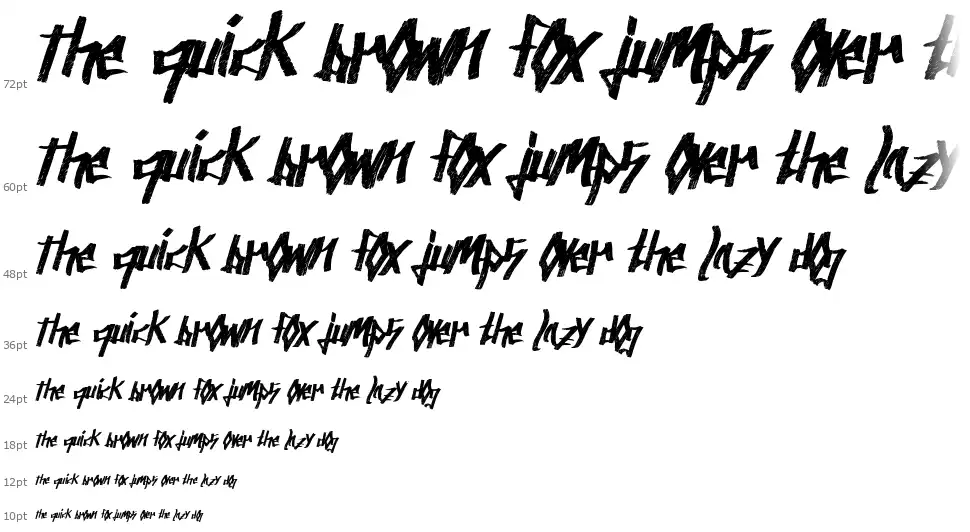 72pt the quick brown fox jumps over t
60pt the quick brown fox jumps over the lazy
48pt the quick brown fox jumps over the lazy dog
36pt the quick brown fox jumps over the lazy dog
24pt the quick brown fox jumps over the lazy dog
18pt the quick brown fox jumps over the lazy dog
12pt the quick brown fox jumps over the lazy dog
10pt the quick brown fox jumps over the lazy dog